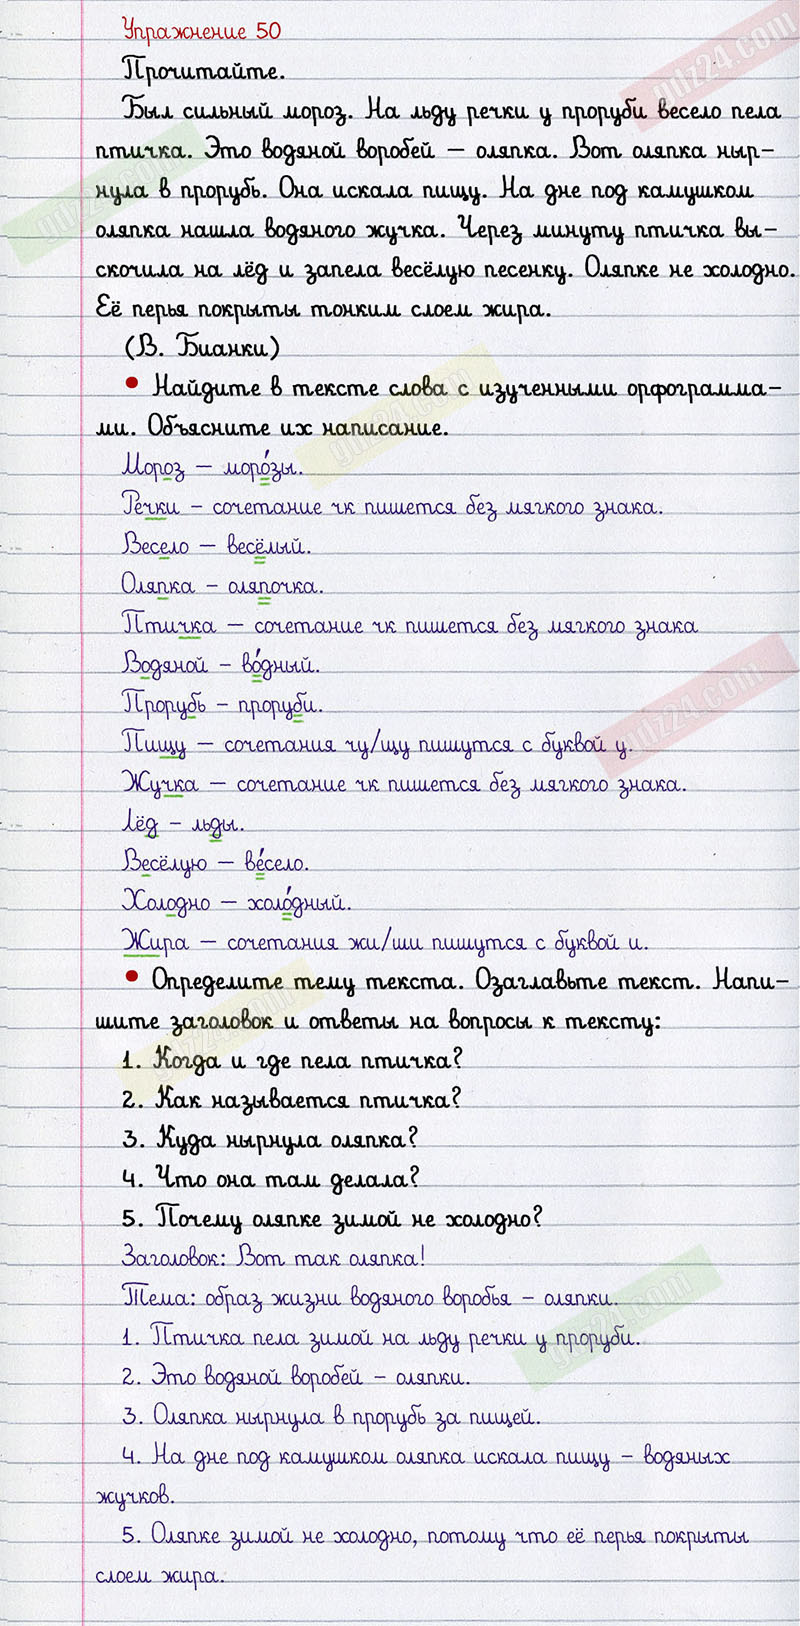 Упражнение 50
Прочитайте.
Был сильный мороз. На льду речки у проруби весело пела
птичка. Это водяной воробей – оляпка. Вот оляпка ныр-
нула в прорубь. Она искала пищу. На дне под камушком
оляпка нашла водяного жучка. Через минуту птичка вы-
скочила на лёд и запела весёлую песенку. Оляпке не холодно.
Её перья покрыты тонким слоем жира.
(В. Бианки)
• Найдите в тексте слова с изученными орфограмма-
ми. Объясните их написание.
Мороз – моро́зы.
Речки – сочетание чк пишется без мягкого знака.
Весело – весёлый.
Оляпка – оляпочка.
Птичка – сочетание чк пишется без мягкого знака
Водяной – во́дный.
Прорубь – проруби.
Пищу – сочетания чу/щу пишутся с буквой у.
Жучка – сочетание чк пишется без мягкого знака.
Лёд – льды.
Весёлую – ве́село.
Холодно – холо́дный.
Жира – сочетания жи/ши пишутся с буквой и.
• Определите тему текста. Озаглавьте текст. Напи-
шите заголовок и ответы на вопросы к тексту:
1. Когда и где пела птичка?
2. Как называется птичка?
3. Куда нырнула оляпка?
4. Что она там делала?
5. Почему оляпке зимой не холодно?
Заголовок: Вот так оляпка!
Тема: образ жизни водяного воробья – оляпки.
1. Птичка пела зимой на льду речки у проруби.
2. Это водяной воробей – оляпки.
3. Оляпка нырнула в прорубь за пищей.
4. На дне под камушком оляпка искала пищу – водяных
жучков.
5. Оляпке зимой не холодно, потому что её перья покрыты
слоем жира.
gdz24.com
gdz24.com
gdz24.com
gdz24.com
gdz24.com
gdz24.com